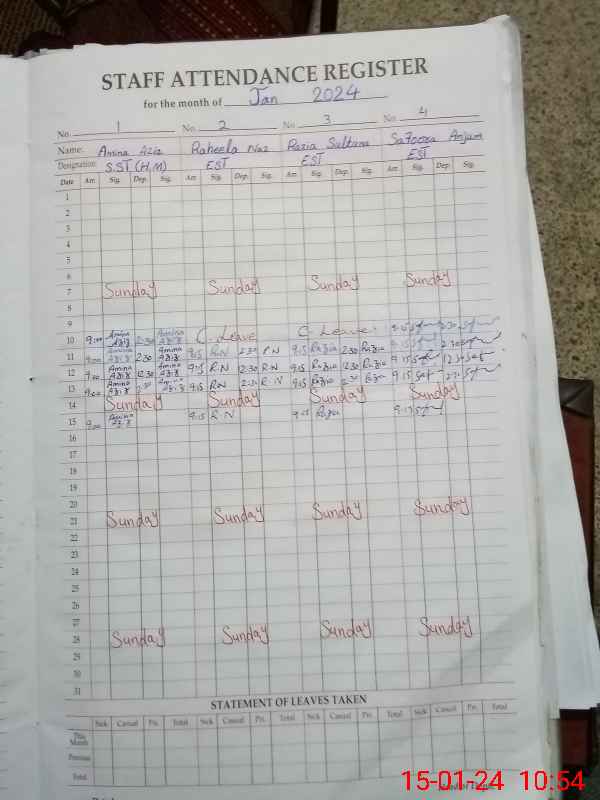 STAFF ATTENDANCE REGISTER
for the month of Jan 2024
No. 1 No. 2 No. 3 No. 4
Name: Amina Aziz Raheela Naz Razia Sultana Safoora Anjum
Designation: S.ST (H.M) EST EST EST
Date Arr. Sig. Dep. Sig. Arr. Sig. Dep. Sig. Arr. Sig. Dep. Sig. Arr. Sig. Dep. Sig.
1
2
3
4
5
6
7 Sunday Sunday Sunday Sunday
8
9
10 9:00 Amina Aziz 2:30 Amina Aziz C. Leave C. Leave 9:15 2:30
11 9:00 Amina Aziz 2:30 Amina Aziz 9:15 R.N 2:30 R.N 9:15 Razia 2:30 Razia 9:15 2:30
12 9:00 Amina Aziz 12:30 Amina Aziz 9:15 R.N 12:30 R.N 9:15 Razia 12:30 Razia 9:15 12:30
13 9:00 Amina Aziz 2:30 Amina Aziz 9:15 R.N R.N 9:15 Razia 2:30 Razia 9:15 2:30
14 Sunday Sunday Sunday Sunday
15 9:00 Amina Aziz 9:15 R.N 9:15 Razia 9:15
16
17
18
19
20
21 Sunday Sunday Sunday Sunday
22
23
24
25
26
27
28 Sunday Sunday Sunday Sunday
29
30
31
STATEMENT OF LEAVES TAKEN
Sick Casual Pri. Total Sick Casual Pri. Total Sick Casual Pri. Total Sick Casual Pri. Total
This Month
Previous
Total
15-01-24 10:54